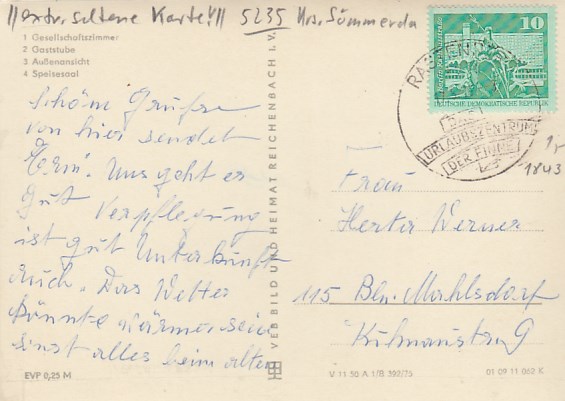 ||extr. seltene Karte!|| 5235 Krs. Sömmerda
1 Gesellschaftszimmer
2 Gaststube
3 Außenansicht
4 Speisesaal
Schöne Grüße
von hier sendet
Erni. Uns geht es
gut Verpflegung
ist gut Unterkunft
auch. Das Wetter
könnte wärmer sein
sonst alles beim alten
EVP 0,25 M
VEB BILD UND HEIMAT REICHENBACH I. V.
10
DEUTSCHE DEMOKRATISCHE REPUBLIK
URLAUBSZENTRUM
DER FINNE
1843
Frau
Herta Werner
115 Bln. Mahlsdorf
V 11 50 A 1/B 392/75
01 09 11 062 K